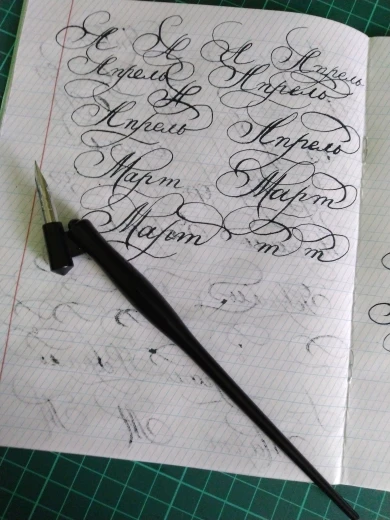 А А А Апрель
Апрель А Апрель
Апрель Апрель
Март Март
Март т т